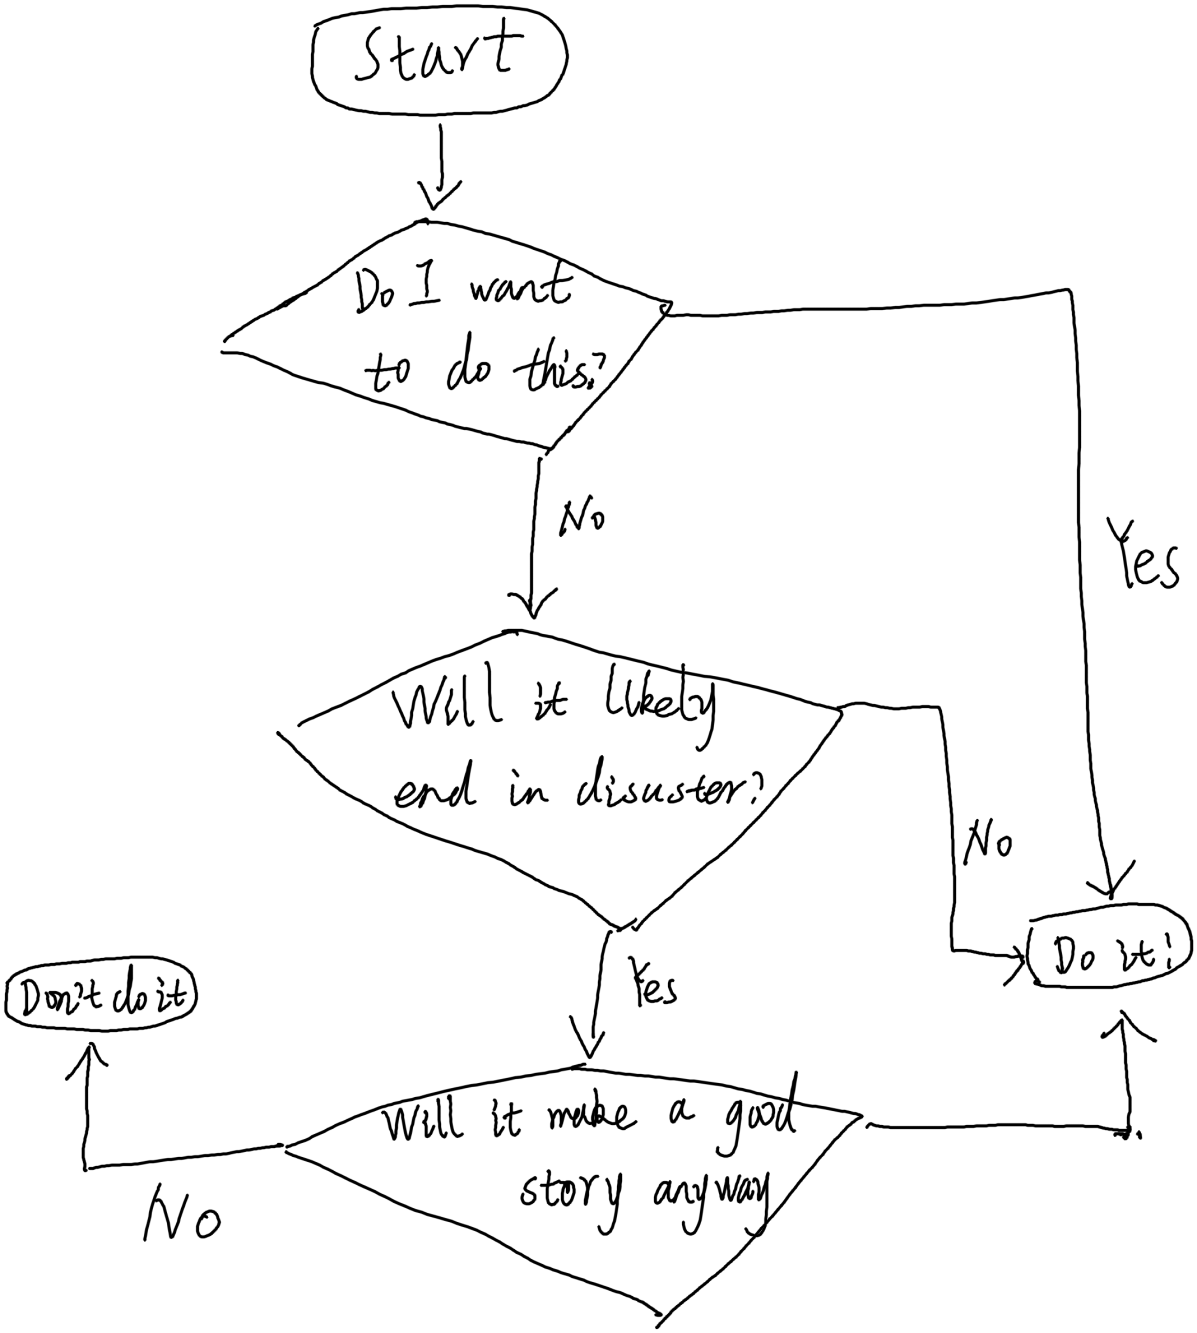 Start
Do I want
to do this?
No
Yes
Will it likely
end in disuster?
No
Do it!
Yes
Don't do it
Will it make a good
story anyway
No